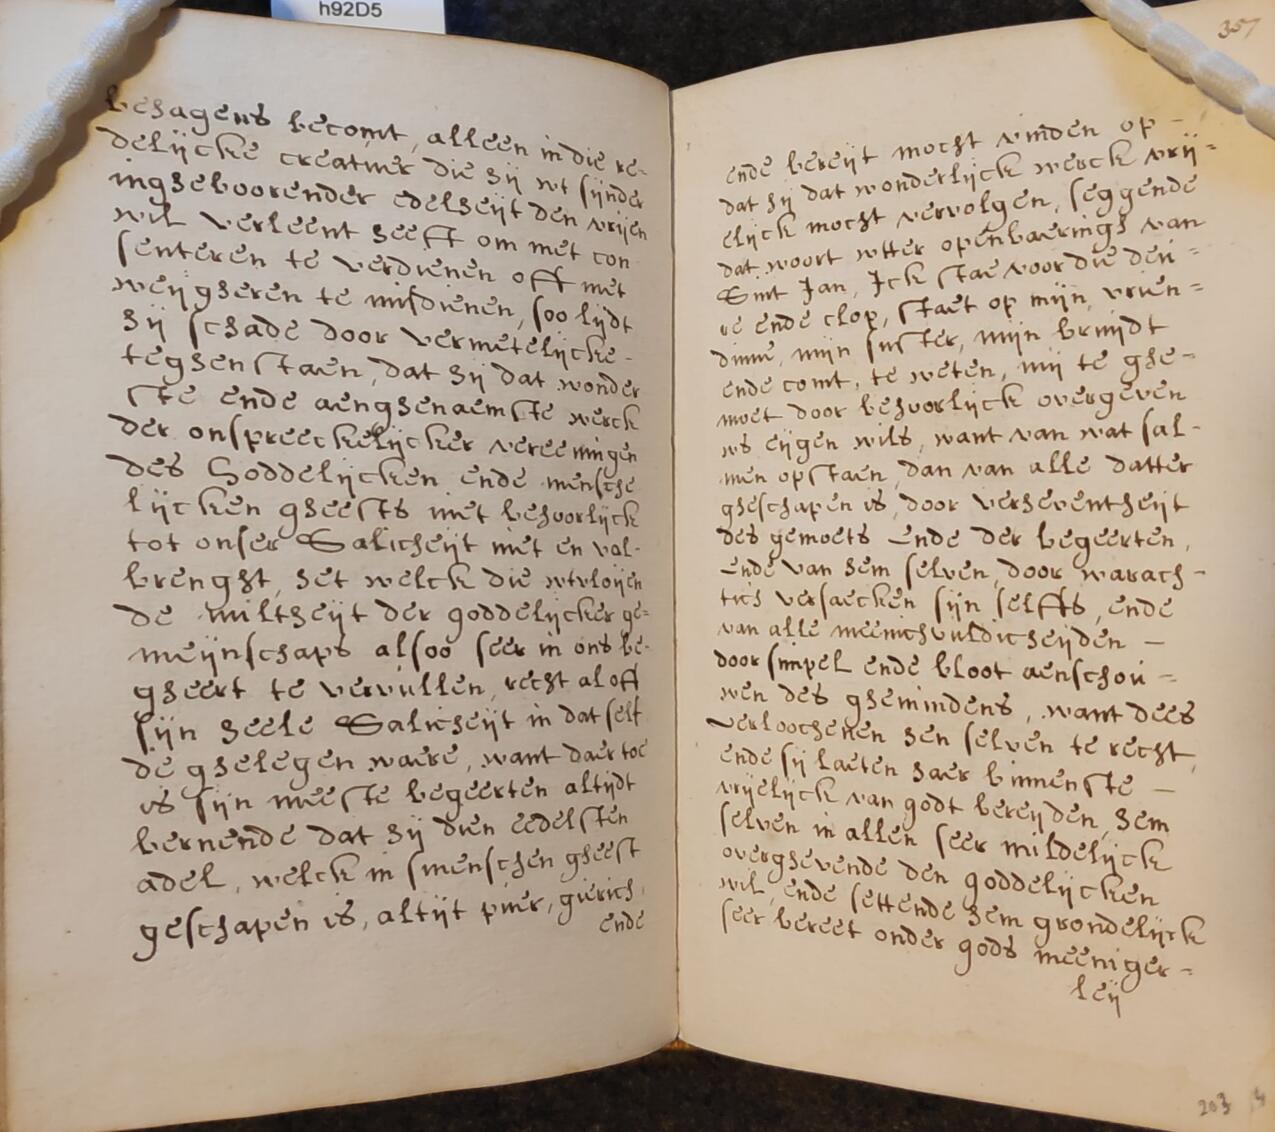 h92D5
behagens becomt, alleen in die re-
delijcke creatuer die hij wt sijnder
inghseboorender edelheijt den vrijen
wil verleent heeft om met con
senteren te verdienen off met
weijgheren te misdienen, soo lijdt
hij schade door vermetelijcke -
teghenstaen, dat hij dat wonder
ste ende aenghenaemste werck
der onspreeckelijcker vereeningen
des Goddelijcken ende mensche
lijcken gheests niet behoorlijck
tot onser Salicheijt niet en vol-
brenght, het welck die wtvloijen
de miltheijt der goddelijcker ge-
meijnschaps alsoo seer in ons be-
gheert te vervullen, recht al off
sijn heele Salicheijt in dat self
de ghelegen waere, want daer toe
is sijn meeste begeerten altijdt
bernende dat hij dien eedelsten
adel, welck in smenschen gheest
geschapen is, altijt puer, gierich
ende
357
ende bereijt mocht vinden op-
dat hij dat wonderlijck werck vrij-
elijck mocht vervolgen, seggende
dat woort wtter openbaerings van
Sint Jan, Ick stae voor die deu-
re ende clop, staet op mijn vrien-
dinne, mijn suster, mijn bruijdt
ende comt, te weten, mij te ghe-
moet door behoorlijck overgeven
ws eijgen wils, want van wat sal-
men opstaen, dan van alle datter
gheschapen is, door verheventheijt
des gemoets ende der begeerten,
ende van hem selven, door warach-
tich versaecken sijn selffs, ende
van alle meenichvuldicheijden -
door simpel ende bloot aenschou-
wen des ghemindens, want dees
verloochenen hen selven te recht,
ende sij laeten haer binnenste -
vrijelijck van godt bereijden, hem
selven in allen seer mildelijck
overghevende den goddelijcken
wil, ende settende hem grondelijck
seer bereet onder gods meeniger-
leij
203